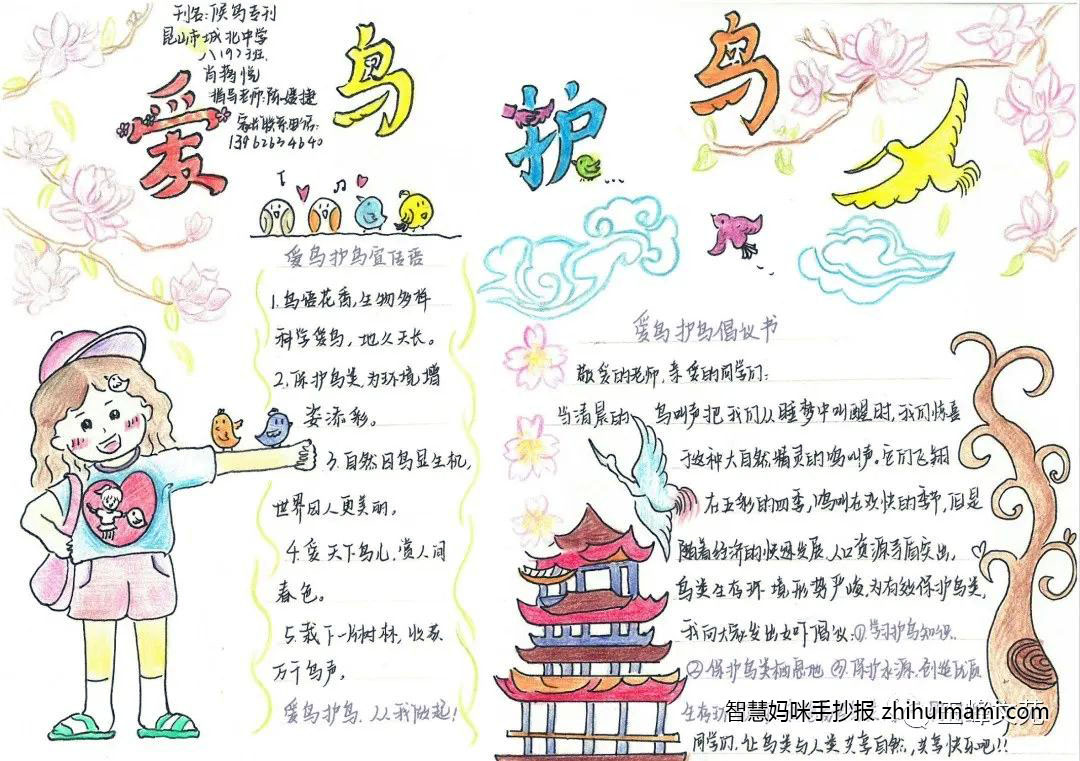 刊名:候鸟专刊
昆山市城北中学
八(9)班
指导老师:陈媛捷
家长联系电话:
13962634640
爱鸟护鸟
爱鸟护鸟宣传语
1.鸟语花香,生物多样
科学爱鸟,地久天长。
2.保护鸟类,为环境增
姿添彩。
3.自然因鸟显生机,
世界因人更美丽。
4.爱天下鸟儿,赏人间
春色。
5.栽下一片树林,收获
万千鸟声。
爱鸟护鸟,从我做起!
爱鸟护鸟倡议书
敬爱的老师,亲爱的同学们:
当清晨的 鸟叫声把我们从睡梦中叫醒时,我们惊喜
于这种大自然精灵的鸣叫声。它们飞翔
在五彩的四季,鸣叫在欢快的季节,但是
随着经济的快速发展,人口资源矛盾突出,
鸟类生存环境形势严峻,为有效保护鸟类,
我向大家发出如下倡议:①学习护鸟知识
②保护鸟类栖息地 ③保护水源,创造优质
生存环
同学们,让鸟类与人类共享自然,共享快乐吧!!
智慧妈咪手抄报 zhihuimami.com